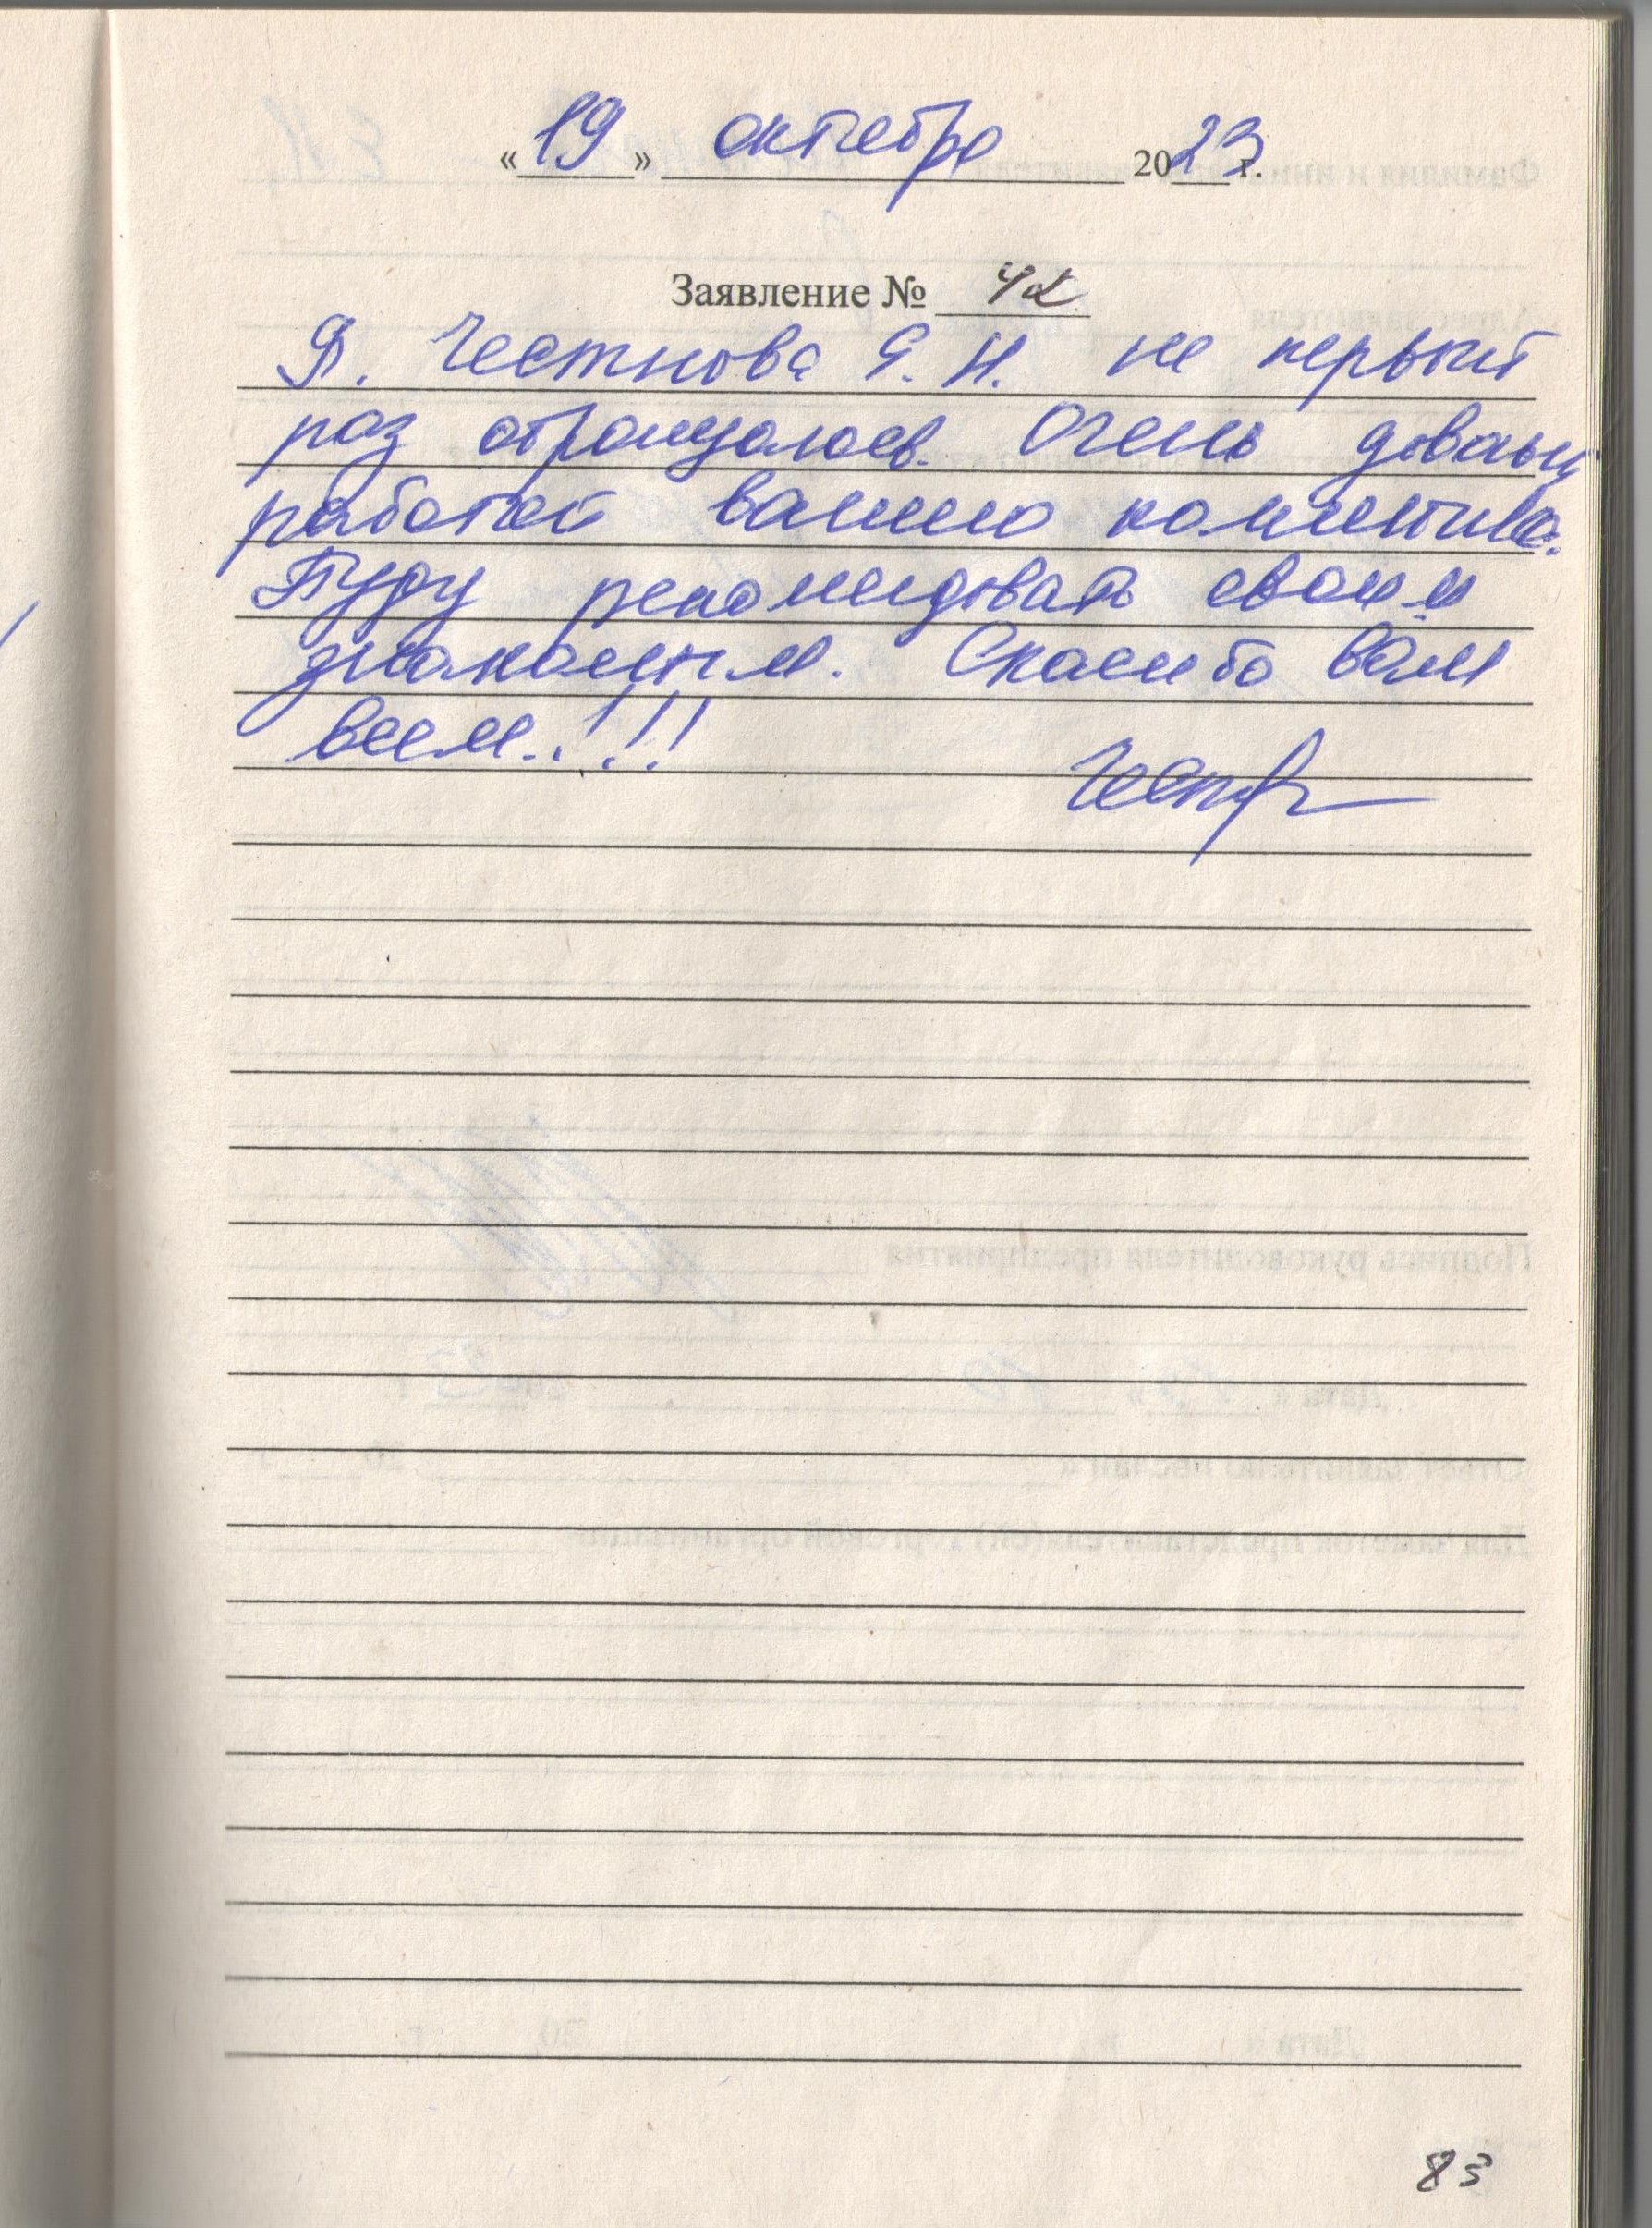 «19» октебре 2023 г.
Заявление № 42
Я. Честнова Е. Н. не первый
раз обращаюсь. Очень довольн
работой вашего коллектива.
Буду рекомендовать своим
знакомым. Спасибо вам
всем!!!
83